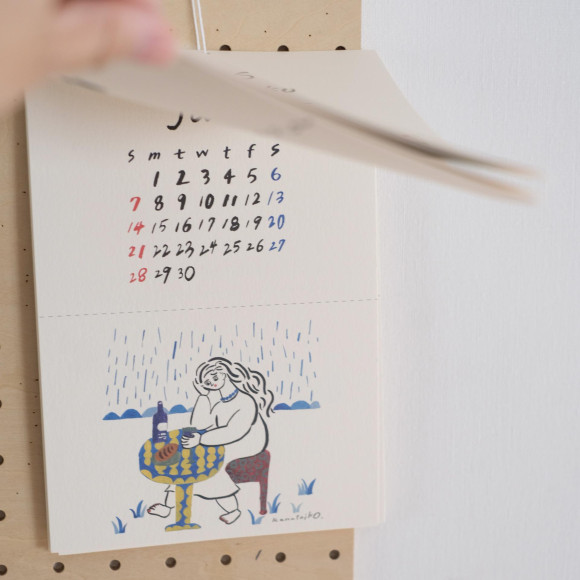 s m t w t f s
1 2 3 4 5 6
7 8 9 10 11 12 13
14 15 16 17 18 19 20
21 22 23 24 25 26 27
28 29 30